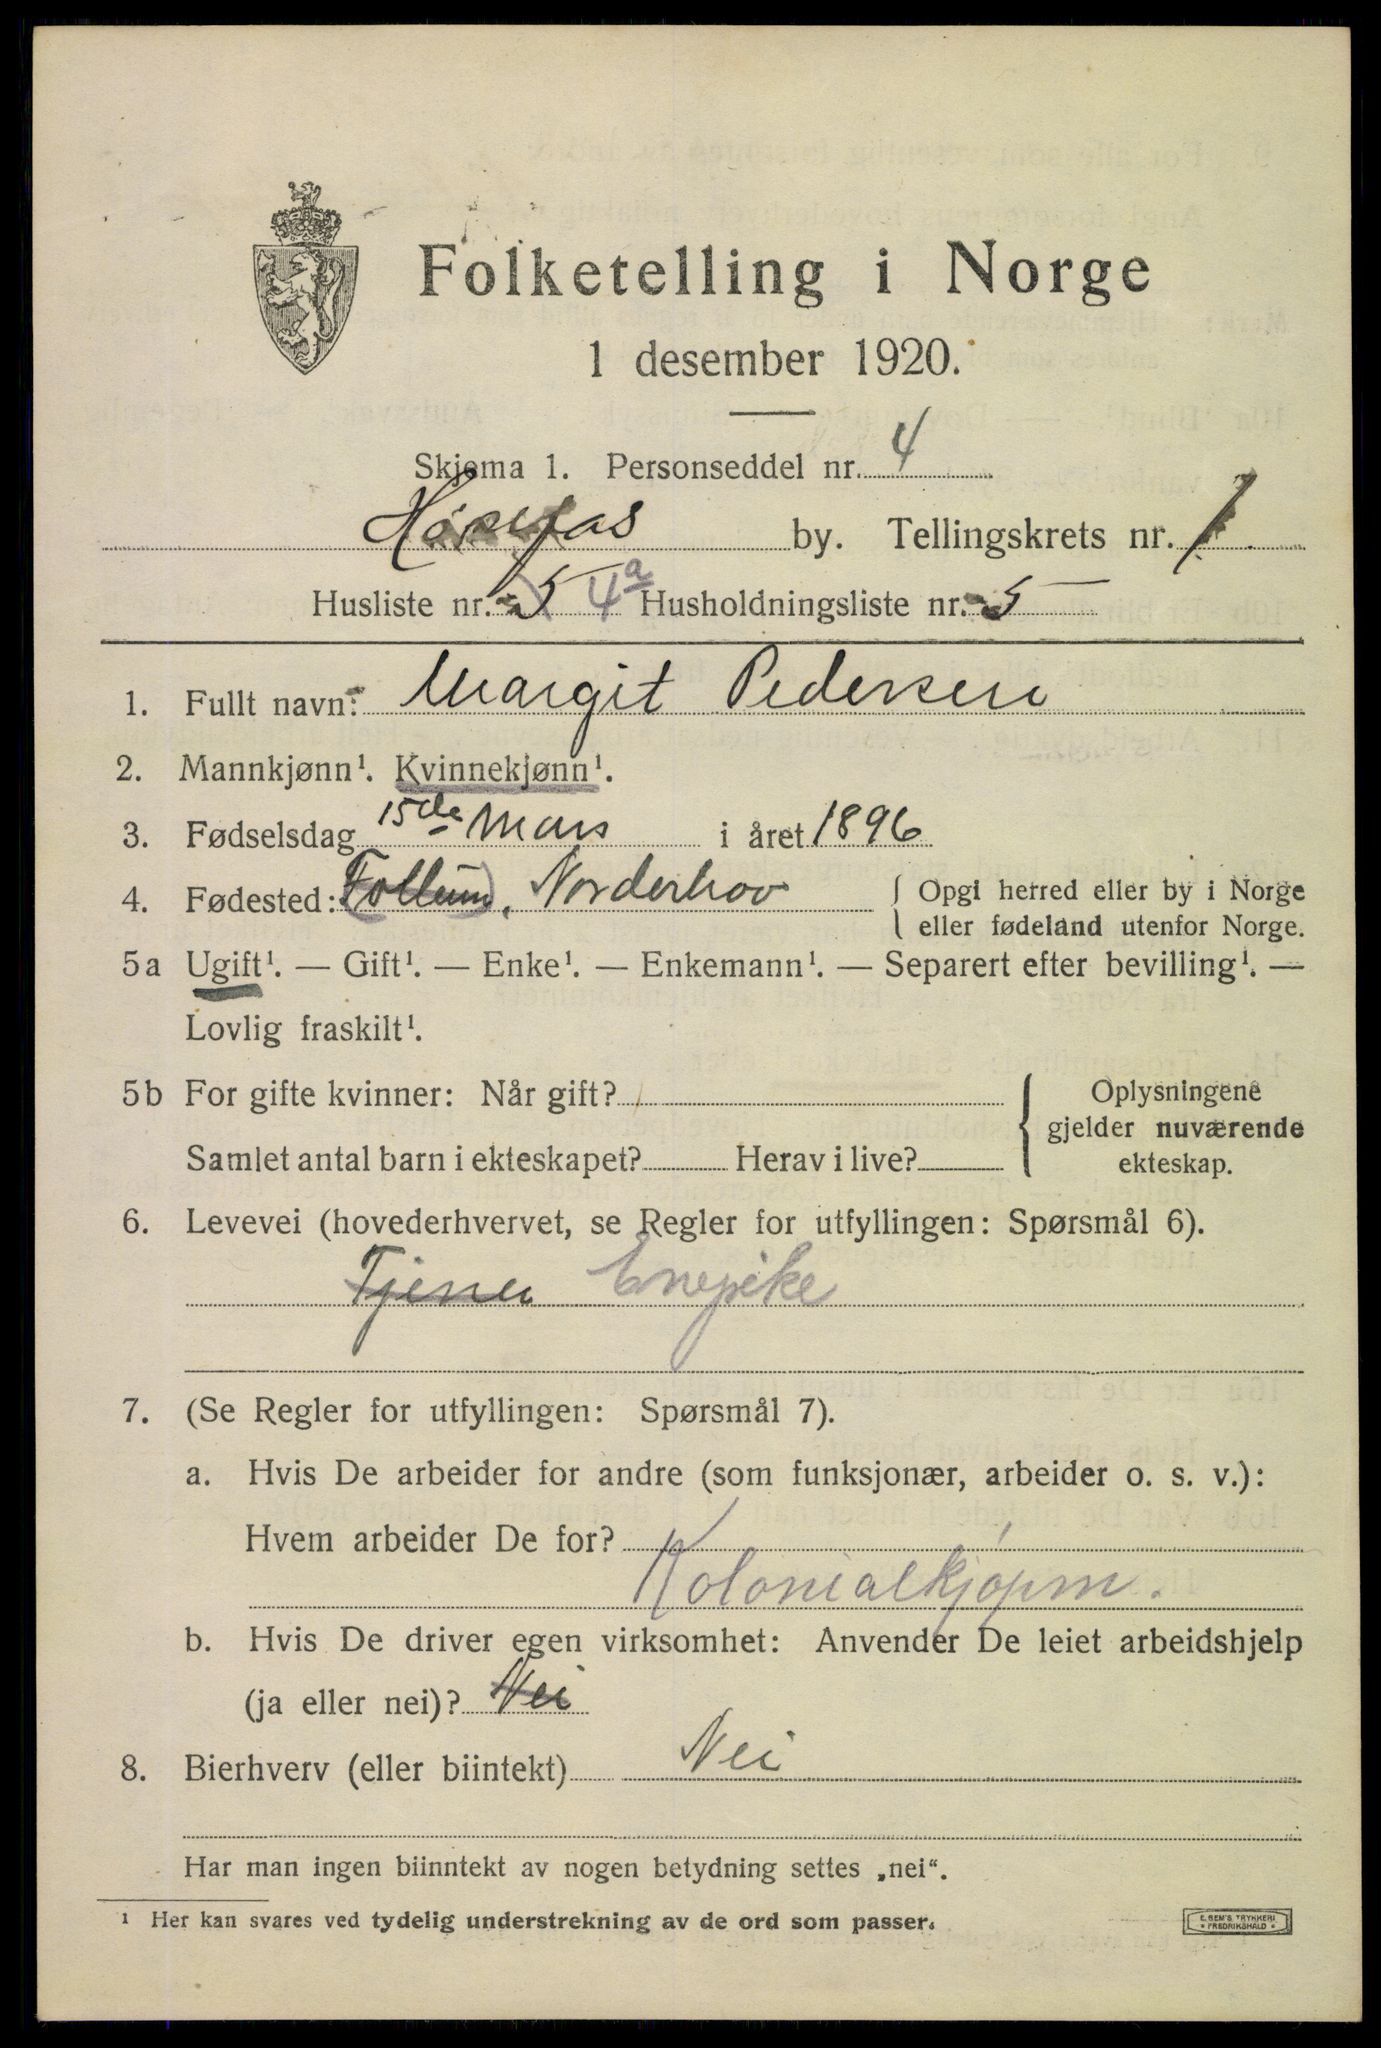 Folketelling i Norge
1 desember 1920.
Skjema 1. Personseddel nr. 4
Hønefos by. Tellingskrets nr. 1
Husliste nr. 5 4a Husholdningsliste nr. 5
1. Fullt navn: Margit Pedersen
2. Mannkjønn¹. Kvinnekjønn¹.
3. Fødselsdag 15de Mars i året 1896
4. Fødested: (Follum), Norderhov { Opgi herred eller by i Norge
eller fødeland utenfor Norge.
5a Ugift¹. — Gift¹. — Enke¹. — Enkemann¹. — Separert efter bevilling¹. —
Lovlig fraskilt¹.
5b For gifte kvinner: Når gift? { Oplysningene
gjelder nuværende
Samlet antal barn i ekteskapet? Herav i live? ekteskap.
6. Levevei (hovederhvervet, se Regler for utfyllingen: Spørsmål 6).
Tjener Enepike
7. (Se Regler for utfyllingen: Spørsmål 7).
a. Hvis De arbeider for andre (som funksjonær, arbeider o. s. v.):
Hvem arbeider De for?
Kolonialkjøpm.
b. Hvis De driver egen virksomhet: Anvender De leiet arbeidshjelp
(ja eller nei)? Nei
8. Bierhverv (eller biintekt) Nei
Har man ingen biinntekt av nogen betydning settes „nei“.
¹ Her kan svares ved tydelig understrekning av de ord som passer.
E. SEM'S TRYKKERI
* FREDRIKSHALD *